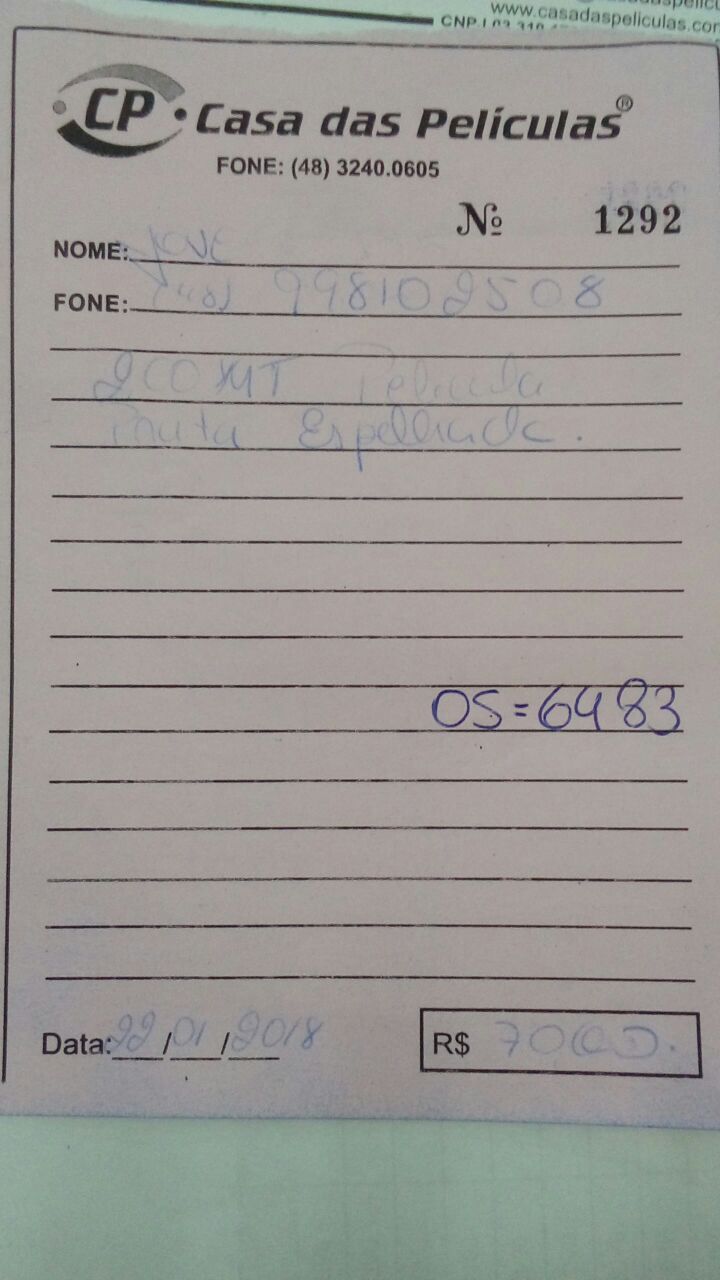 www.casadaspeliculas.com
CNPJ
CP Casa das Películas®
FONE: (48) 3240.0605
Nº 1292
NOME:
FONE: (48) 998102508
Película
Prata Espelhada.
OS=6483
Data: 22/01/2018 R$